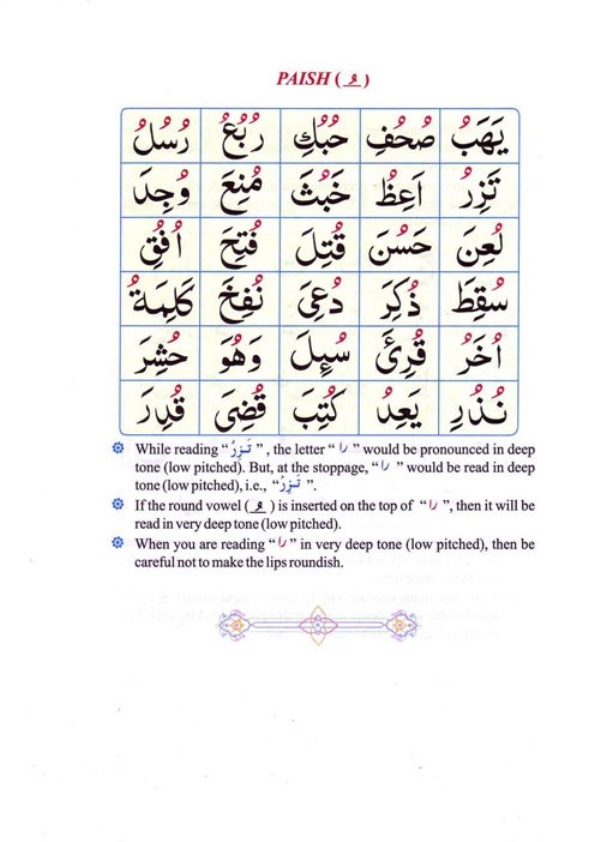 PAISH ( ـُ )
يَهَبُ صُحُفِ حُبُكِ رُبُعُ رُسُلُ
تَزِرُ اَعِظُ خَبُثَ مُنِعَ وُجِدَ
لُعِنَ حَسُنَ قُتِلَ فُتِحَ اُفُقِ
سُقِطَ ذُكِرَ دُعِىَ نُفِخَ كَلِمَةُ
اُخَرُ قُرِئَ سُئِلَ وَهُوَ حُشِرَ
نُذُرِ يَعِدُ كُتِبَ قُضِىَ قُدِرَ
While reading “ تَزِرُ ” , the letter “ را ” would be pronounced in deep
tone (low pitched). But, at the stoppage, “ را ” would be read in deep
tone (low pitched), i.e., “ تَزِرُ ”.
If the round vowel ( ـُ ) is inserted on the top of “ را ”, then it will be
read in very deep tone (low pitched).
When you are reading “ را ” in very deep tone (low pitched), then be
careful not to make the lips roundish.